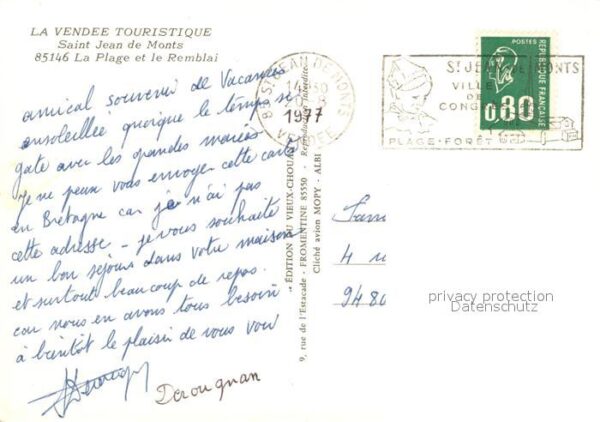 LA VENDEE TOURISTIQUE
Saint Jean de Monts
85146 La Plage et le Remblai
amical souvenir de Vacances
ensoleillée quoique le temps se
gate avec les grandes marées
je ne peux vous envoyer cette carte
en Bretagne car je n'ai pas
cette adresse - je vous souhaite
un bon séjour dans votre maison
et surtout beaucoup de repos.
car nous en avons tous besoin
à bientôt le plaisir de vous voir
Derougnan
ÉDITION DU VIEUX-CHOUAN
9, rue de l'Estacade - FROMENTINE 85550 - Reproduction interdite
Cliché avion MOPY - ALBI
85 ST JEAN DE MONTS
1977
VENDEE
ST JEAN DE MONTS
VILLE
DE
CONGRES
PLAGE-FORET
POSTES
REPUBLIQUE FRANCAISE
0,80
Fam
4
9480
privacy protection
Datenschutz